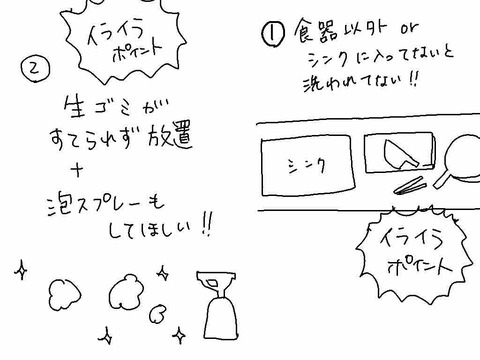 ① 食器以外 or
シンクに入ってないと
洗われてない!!
シンク
イライラ
ポイント
イライラ
ポイント
②
生ゴミが
すてられず放置
+
泡スプレーも
してほしい!!